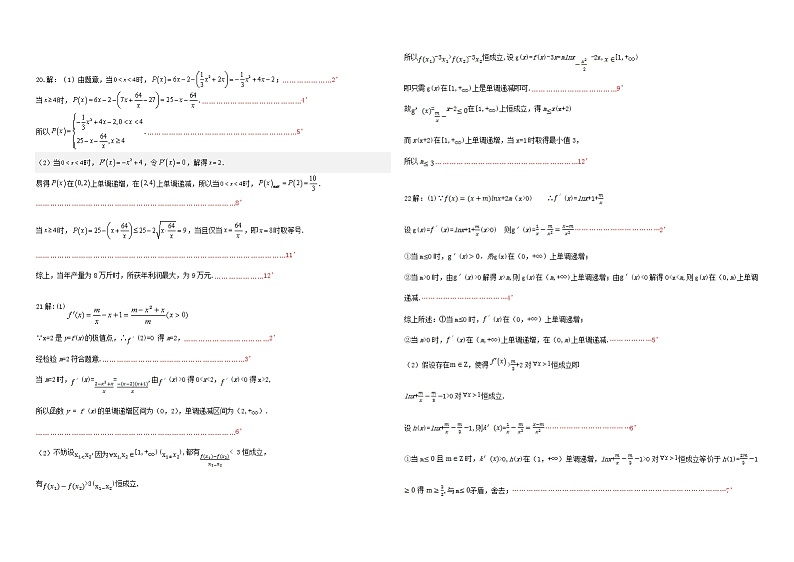 20.解：（1）由题意，当0<x<4时，P(x)=6x−2−(1/3x³+2x)=−1/3x³+4x−2；…………………2'
当x≥4时，P(x)=6x−2−(7x+64/x−27)=25−x−64/x.……………………………………4'
所以P(x)={−1/3x³+4x−2,0<x<4
25−x−64/x,x≥4 .………………………………………………………5'
（2）当0<x<4时，P'(x)=−x²+4，令P'(x)=0，解得x=2.
易得P(x)在(0,2)上单调递增，在(2,4)上单调递减，所以当0<x<4时，P(x)max=P(2)=10/3.
…………………………………………………………………………8'
当x≥4时，P(x)=25−(x+64/x)≤25−2√(x·64/x)=9，当且仅当x=64/x，即x=8时取等号.
……………………………………………………………………………………………11'
综上，当年产量为8万斤时，所获年利润最大，为9万元.…………………12'
21解:(1) f'(x)=m/x−x+1=(m−x²+x)/m(x>0)
∵x=2是y=f(x)的极值点，∴f'(2)=0 得m=2,………………………………2'
经检验m=2符合题意.……………………………………………………3'
当m=2时，f'(x)=(2−x²+x)/x=−(x−2)(x+1)/x,由f'(x)>0得0<x<2,f'(x)<0得x>2,
所以函数y = f (x)的单调递增区间为（0，2），单调递减区间为(2,+∞).
…………………………………………………………………………6'
（2）不妨设x₁<x₂,因为∀x₁,x₂∈[1,+∞)(x₁≠x₂),都有(f(x₁)−f(x₂))/(x₁−x₂)< 3恒成立，
有f(x₁)−f(x₂)>3(x₁−x₂)恒成立.
所以f(x₁)−3x₁>f(x₂)−3x₂恒成立,设g(x)=f(x)-3x=mlnx−x²/2-2x,x∈[1,+∞)
即只需g(x)在[1,+∞)上是单调递减即可.………………………………9'
故g'(x)=m/x−x−2≤0在[1,+∞)上恒成立，得m≤x(x+2)
而x(x+2)在[1,+∞)上单调递增，当x=1时取得最小值3,
所以m≤3……………………………………………………12'
22解：(1)∵f(x)=(x+m)lnx+2m（x>0） ∴f'(x)=lnx+1+m/x
设g(x)=f'(x)=lnx+1+m/x(x>0) 则g'(x)=1/x−m/x²=(x−m)/x²………………………………2'
①当m≤0时，g'(x)>0.则g(x)在（0，+∞）上单调递增；
②当m>0时，由g'(x)>0解得x>m,则g(x)在(m,+∞)上单调递增；由g'(x)<0解得0<x<m,则g(x)在（0,m)上单调
递减.………………………………4'
综上所述：①当m≤0时，f'(x)在（0，+∞）上单调递增；
②当m>0时，f'(x)在（m,+∞)上单调递增，在（0,m)上单调递减.………………5'
（2）假设存在m∈Z，使得f'(x)>m/3+2对∀x>1恒成立即
lnx+m/x−m/3−1>0对∀x>1恒成立.
设h(x)=lnx+m/x−m/3−1,则h'(x)=1/x−m/x²=(x−m)/x²………………………………6'
①当m≤0且m∈Z时，h'(x)>0,h(x)在（1，+∞）单调递增，lnx+m/x−m/3−1>0对∀x>1恒成立等价于h(1)=2m/3−1
≥0得m≥3/2.与m≤0矛盾，舍去；……………………………………………………………………7'